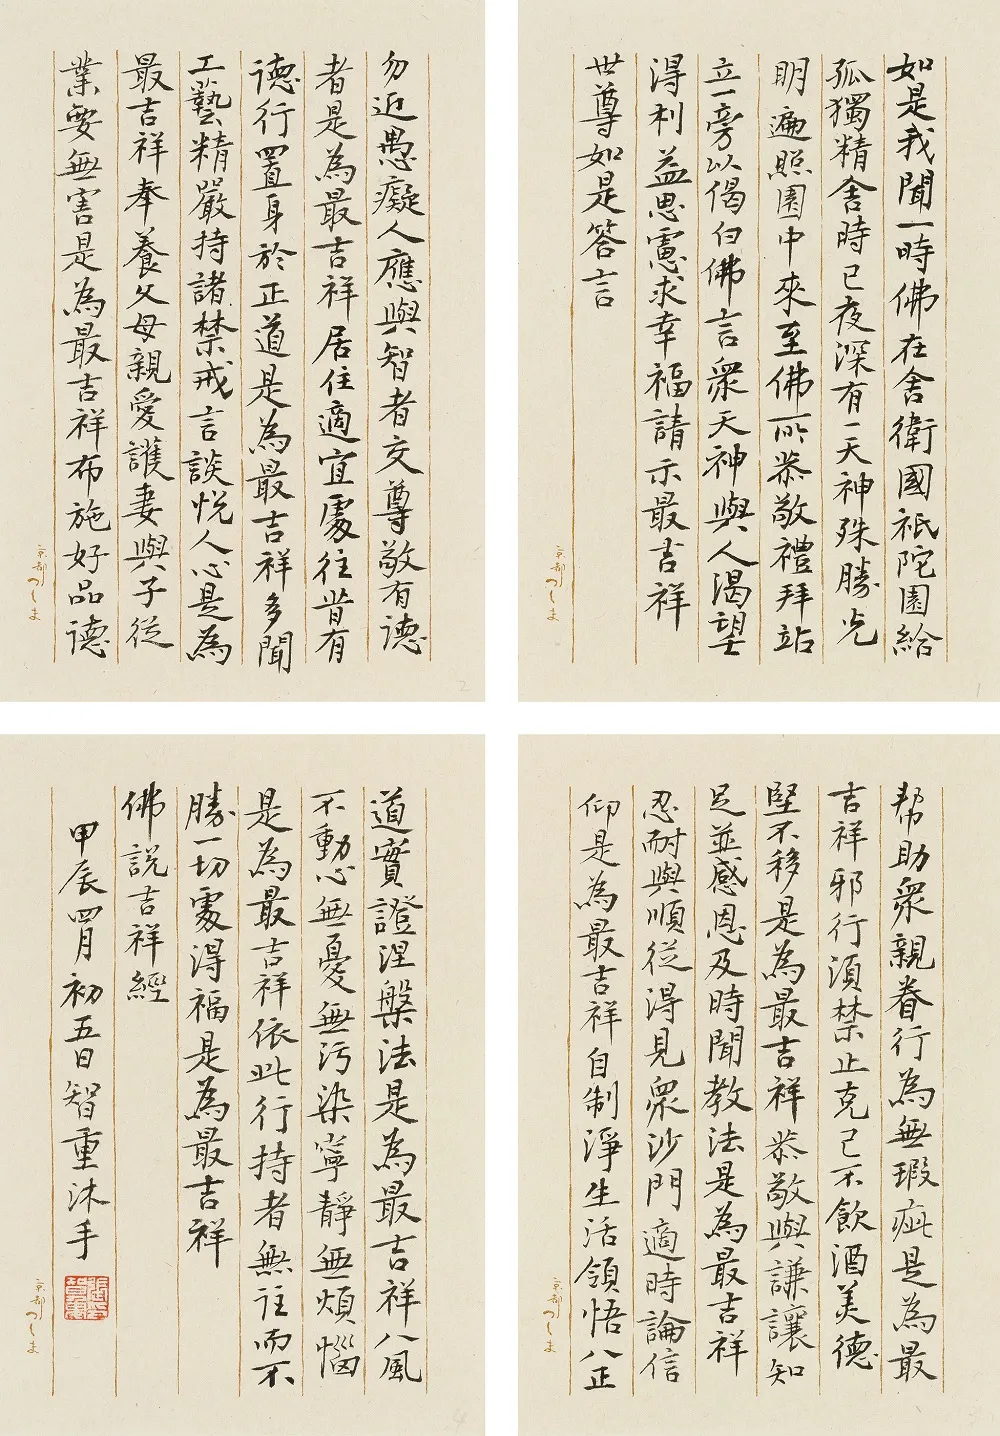 如是我聞一時佛在舍衛國祇陀園給
孤獨精舍時已夜深有一天神殊勝光
明遍照園中來至佛所恭敬禮拜站
立一旁以偈白佛言衆天神與人渴望
得利益思慮求幸福請示最吉祥
世尊如是答言
京都つしま
1
勿近愚癡人應與智者交尊敬有德
者是為最吉祥居住適宜處往昔有
德行置身於正道是為最吉祥多聞
工藝精嚴持諸禁戒言談悅人心是為
最吉祥奉養父母親愛護妻與子從
業要無害是為最吉祥布施好品德
京都つしま
2
幫助衆親眷行為無瑕疵是為最
吉祥邪行須禁止克己不飲酒美德
堅不移是為最吉祥恭敬與謙讓知
足並感恩及時聞教法是為最吉祥
忍耐與順從得見衆沙門適時論信
仰是為最吉祥自制淨生活領悟八正
京都つしま
3
道實證涅槃法是為最吉祥八風
不動心無憂無污染寧靜無煩惱
是為最吉祥依此行持者無往而不
勝一切處得福是為最吉祥
佛說吉祥經
甲辰四月初五日智重沐手
京都つしま
4